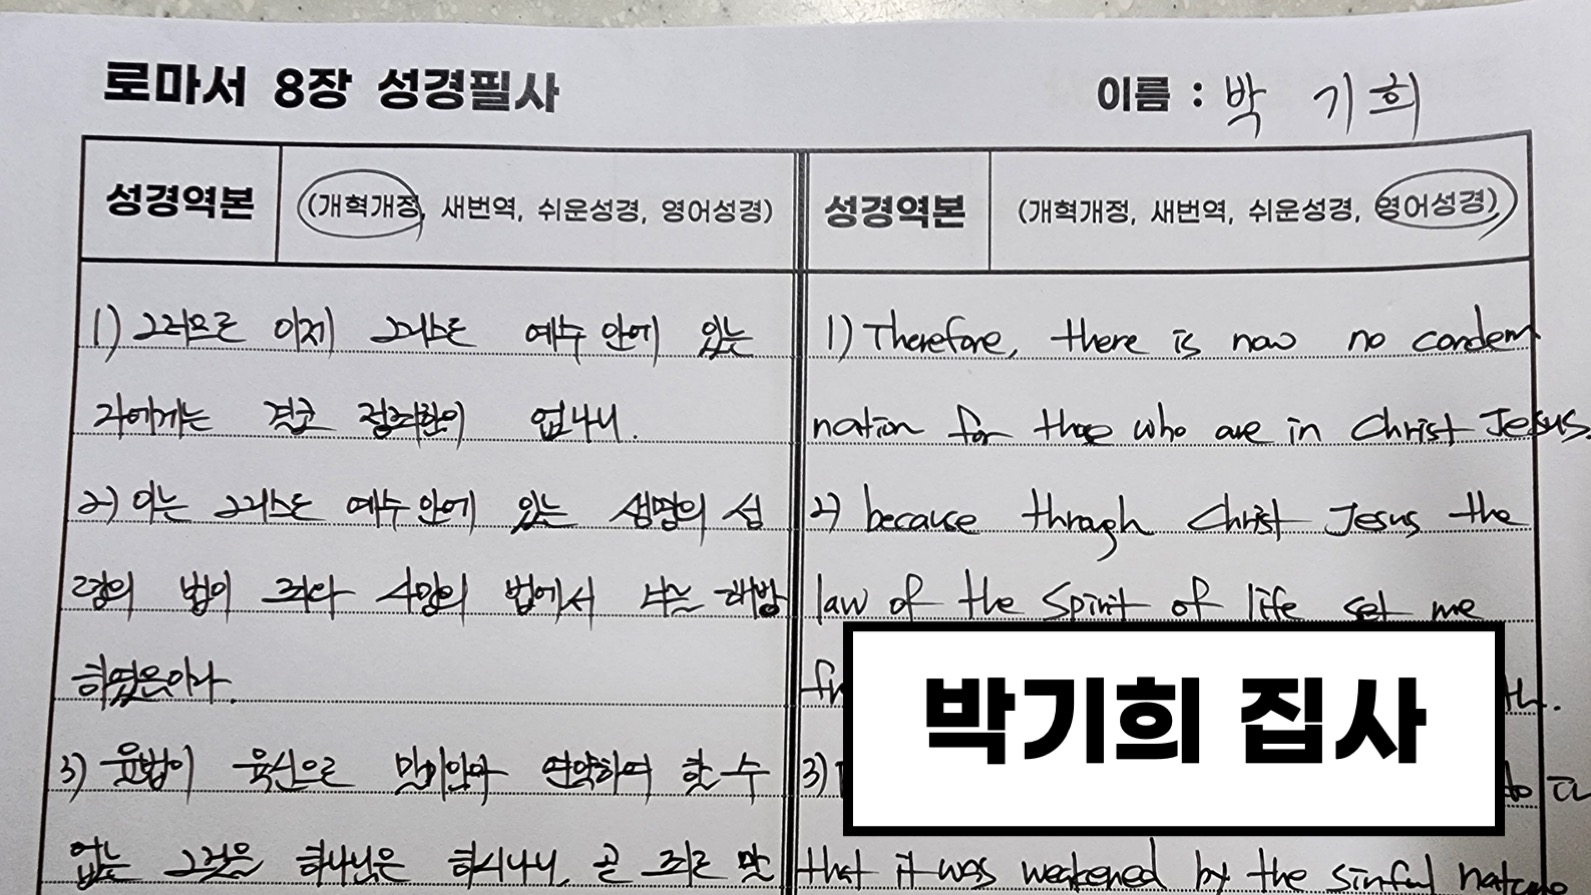 로마서 8장 성경필사
이름 : 박 기 희
성경역본 (개혁개정, 새번역, 쉬운성경, 영어성경)
1) 그러므로 이제 그리스도 예수 안에 있는
자에게는 결코 정죄함이 없나니.
2) 이는 그리스도 예수 안에 있는 생명의 성
령의 법이 죄와 사망의 법에서 너를 해방
하였음이라.
3) 율법이 육신으로 말미암아 연약하여 할 수
없는 그것을 하나님은 하시나니, 곧 죄로 말
성경역본 (개혁개정, 새번역, 쉬운성경, 영어성경)
1) Therefore, there is now no condem
nation for those who are in Christ Jesus.
2) because through Christ Jesus the
law of the Spirit of life set me
3)
that it was weakened by the sinful nature
박기희 집사